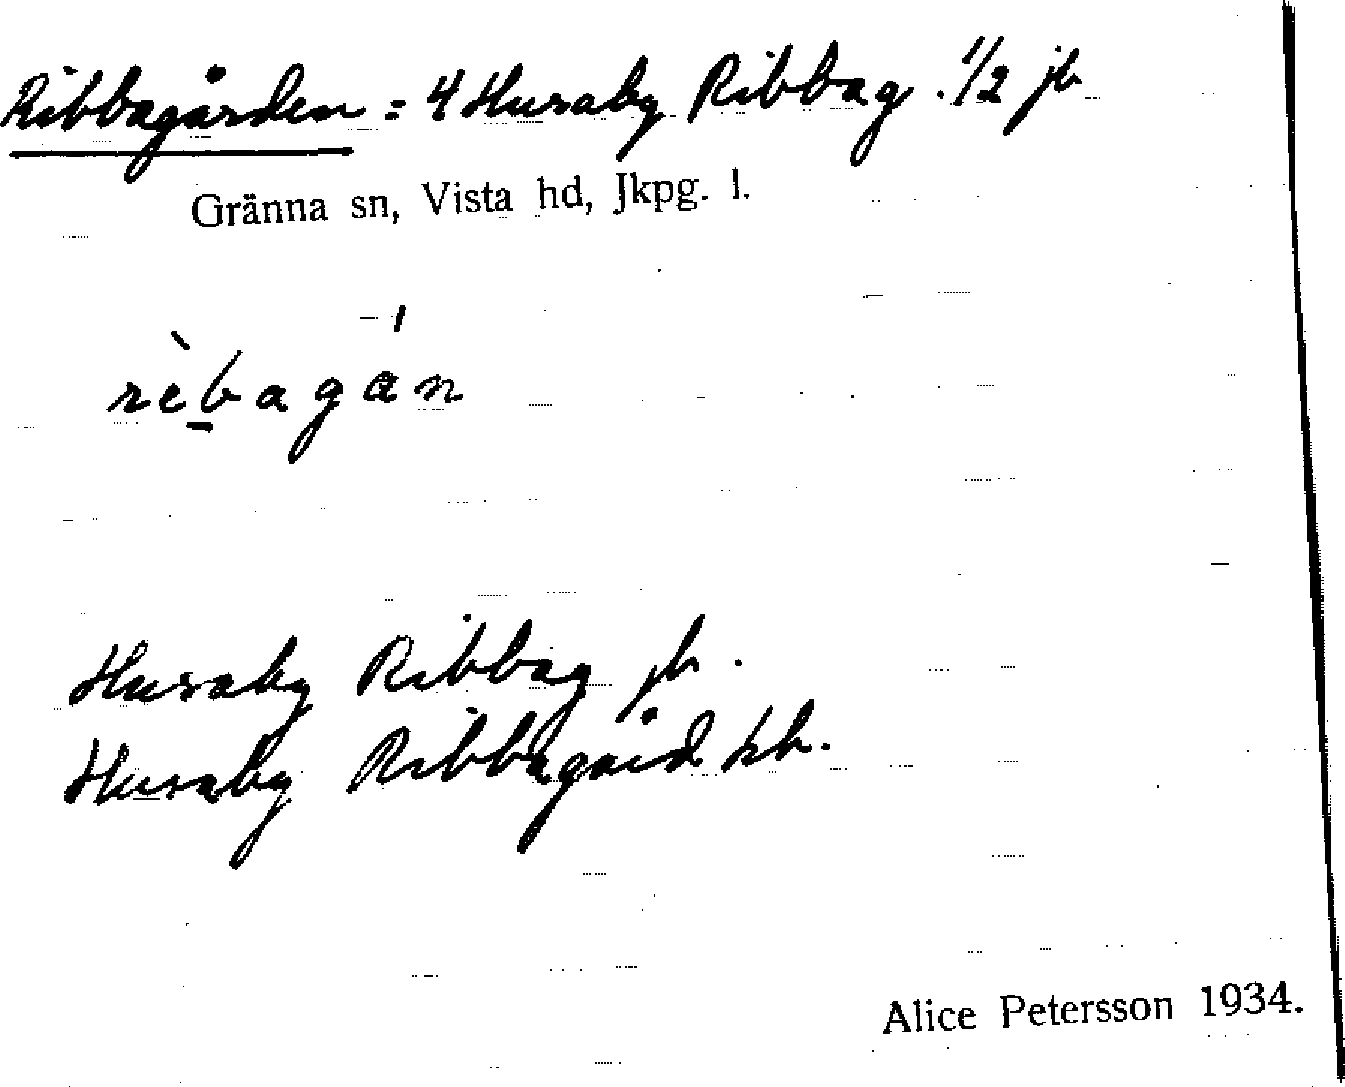 Ribbagården = 4 Husaby Ribbag. 1/2 jb
Gränna sn, Vista hd, Jkpg. l.
rèbagán
Husaby Ribbag jb.
Husaby Ribbagård kb.
Alice Petersson 1934.